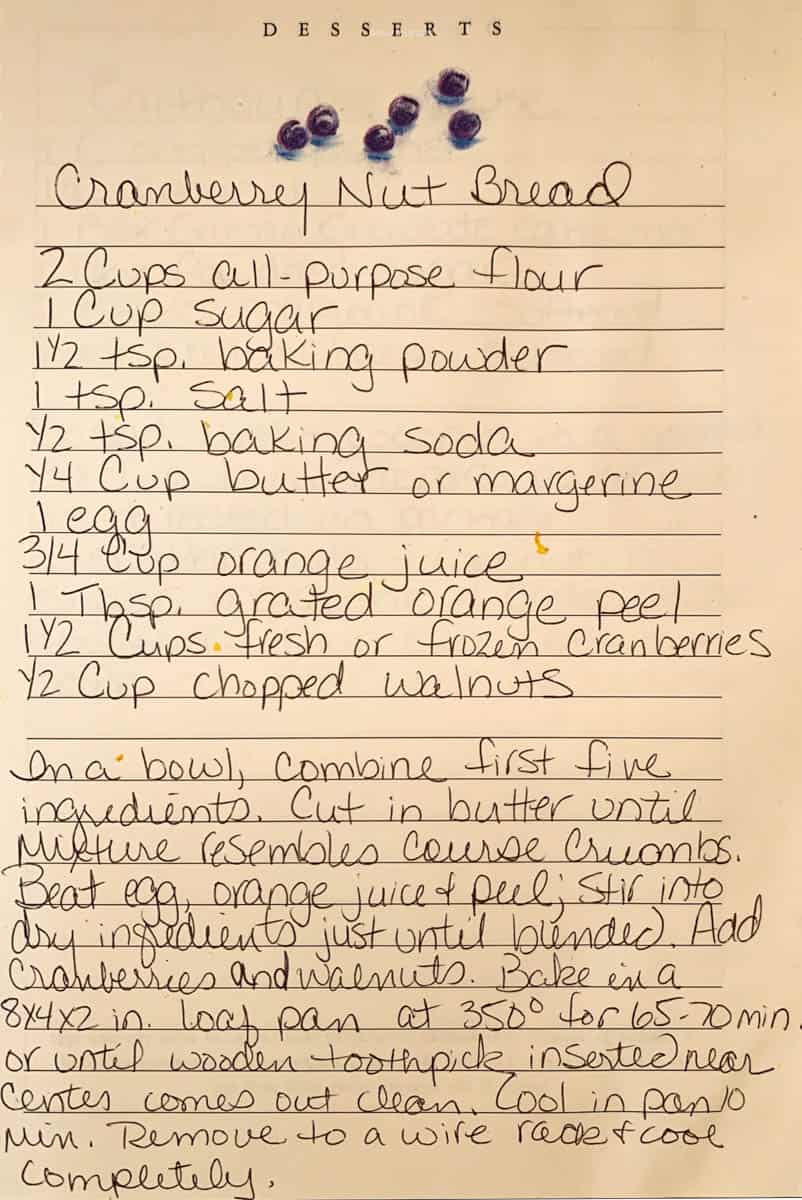 DESSERTS
Cranberry Nut Bread
2 Cups all-purpose flour
1 Cup sugar
1 1/2 tsp. baking powder
1 tsp. Salt
1/2 tsp. baking soda
1/4 Cup butter or margerine
1 egg
3/4 Cup orange juice
1 Tbsp. grated orange peel
1 1/2 Cups fresh or frozen Cranberries
1/2 Cup chopped walnuts
In a bowl, combine first five
ingredients. Cut in butter until
Mixture resembles course Crumbs.
Beat egg, orange juice & peel; Stir into
dry ingredients just until blended. Add
Cranberries and walnuts. Bake in a
8x4x2 in. loaf pan at 350° for 65-70 min.
or until wooden toothpick inserted near
Center comes out clean. Cool in pan 10
Min. Remove to a wire rack & cool
completely.